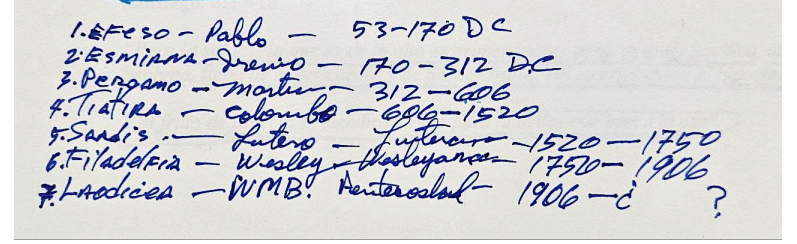 1. EFESO - Pablo - 53-170 DC
2. ESMIRNA - Ireneo - 170-312 D.C
3. Pergamo - Martin - 312-606
4. TIATIRA - Colombo - 606-1520
5. Sardis. - Lutero - Luterana - 1520-1750
6. Filadelfia - Wesley - Wesleyanos - 1750-1906
7. LAodicea - WMB. Pentecostal - 1906-¿ ?